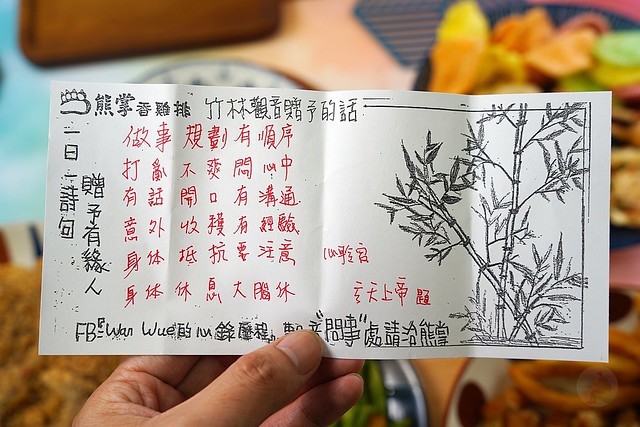 熊掌香雞排 竹林觀音贈予的話
一日一詩句
贈予有緣人
做事規劃有順序
打亂不爽悶心中
有話開口有溝通
意外收穫有經驗
身体抵抗要注意
身体休息大腦休
玄天上帝 題
FB:"Wan Wue"的心錄歷程, "問事"處請洽熊掌